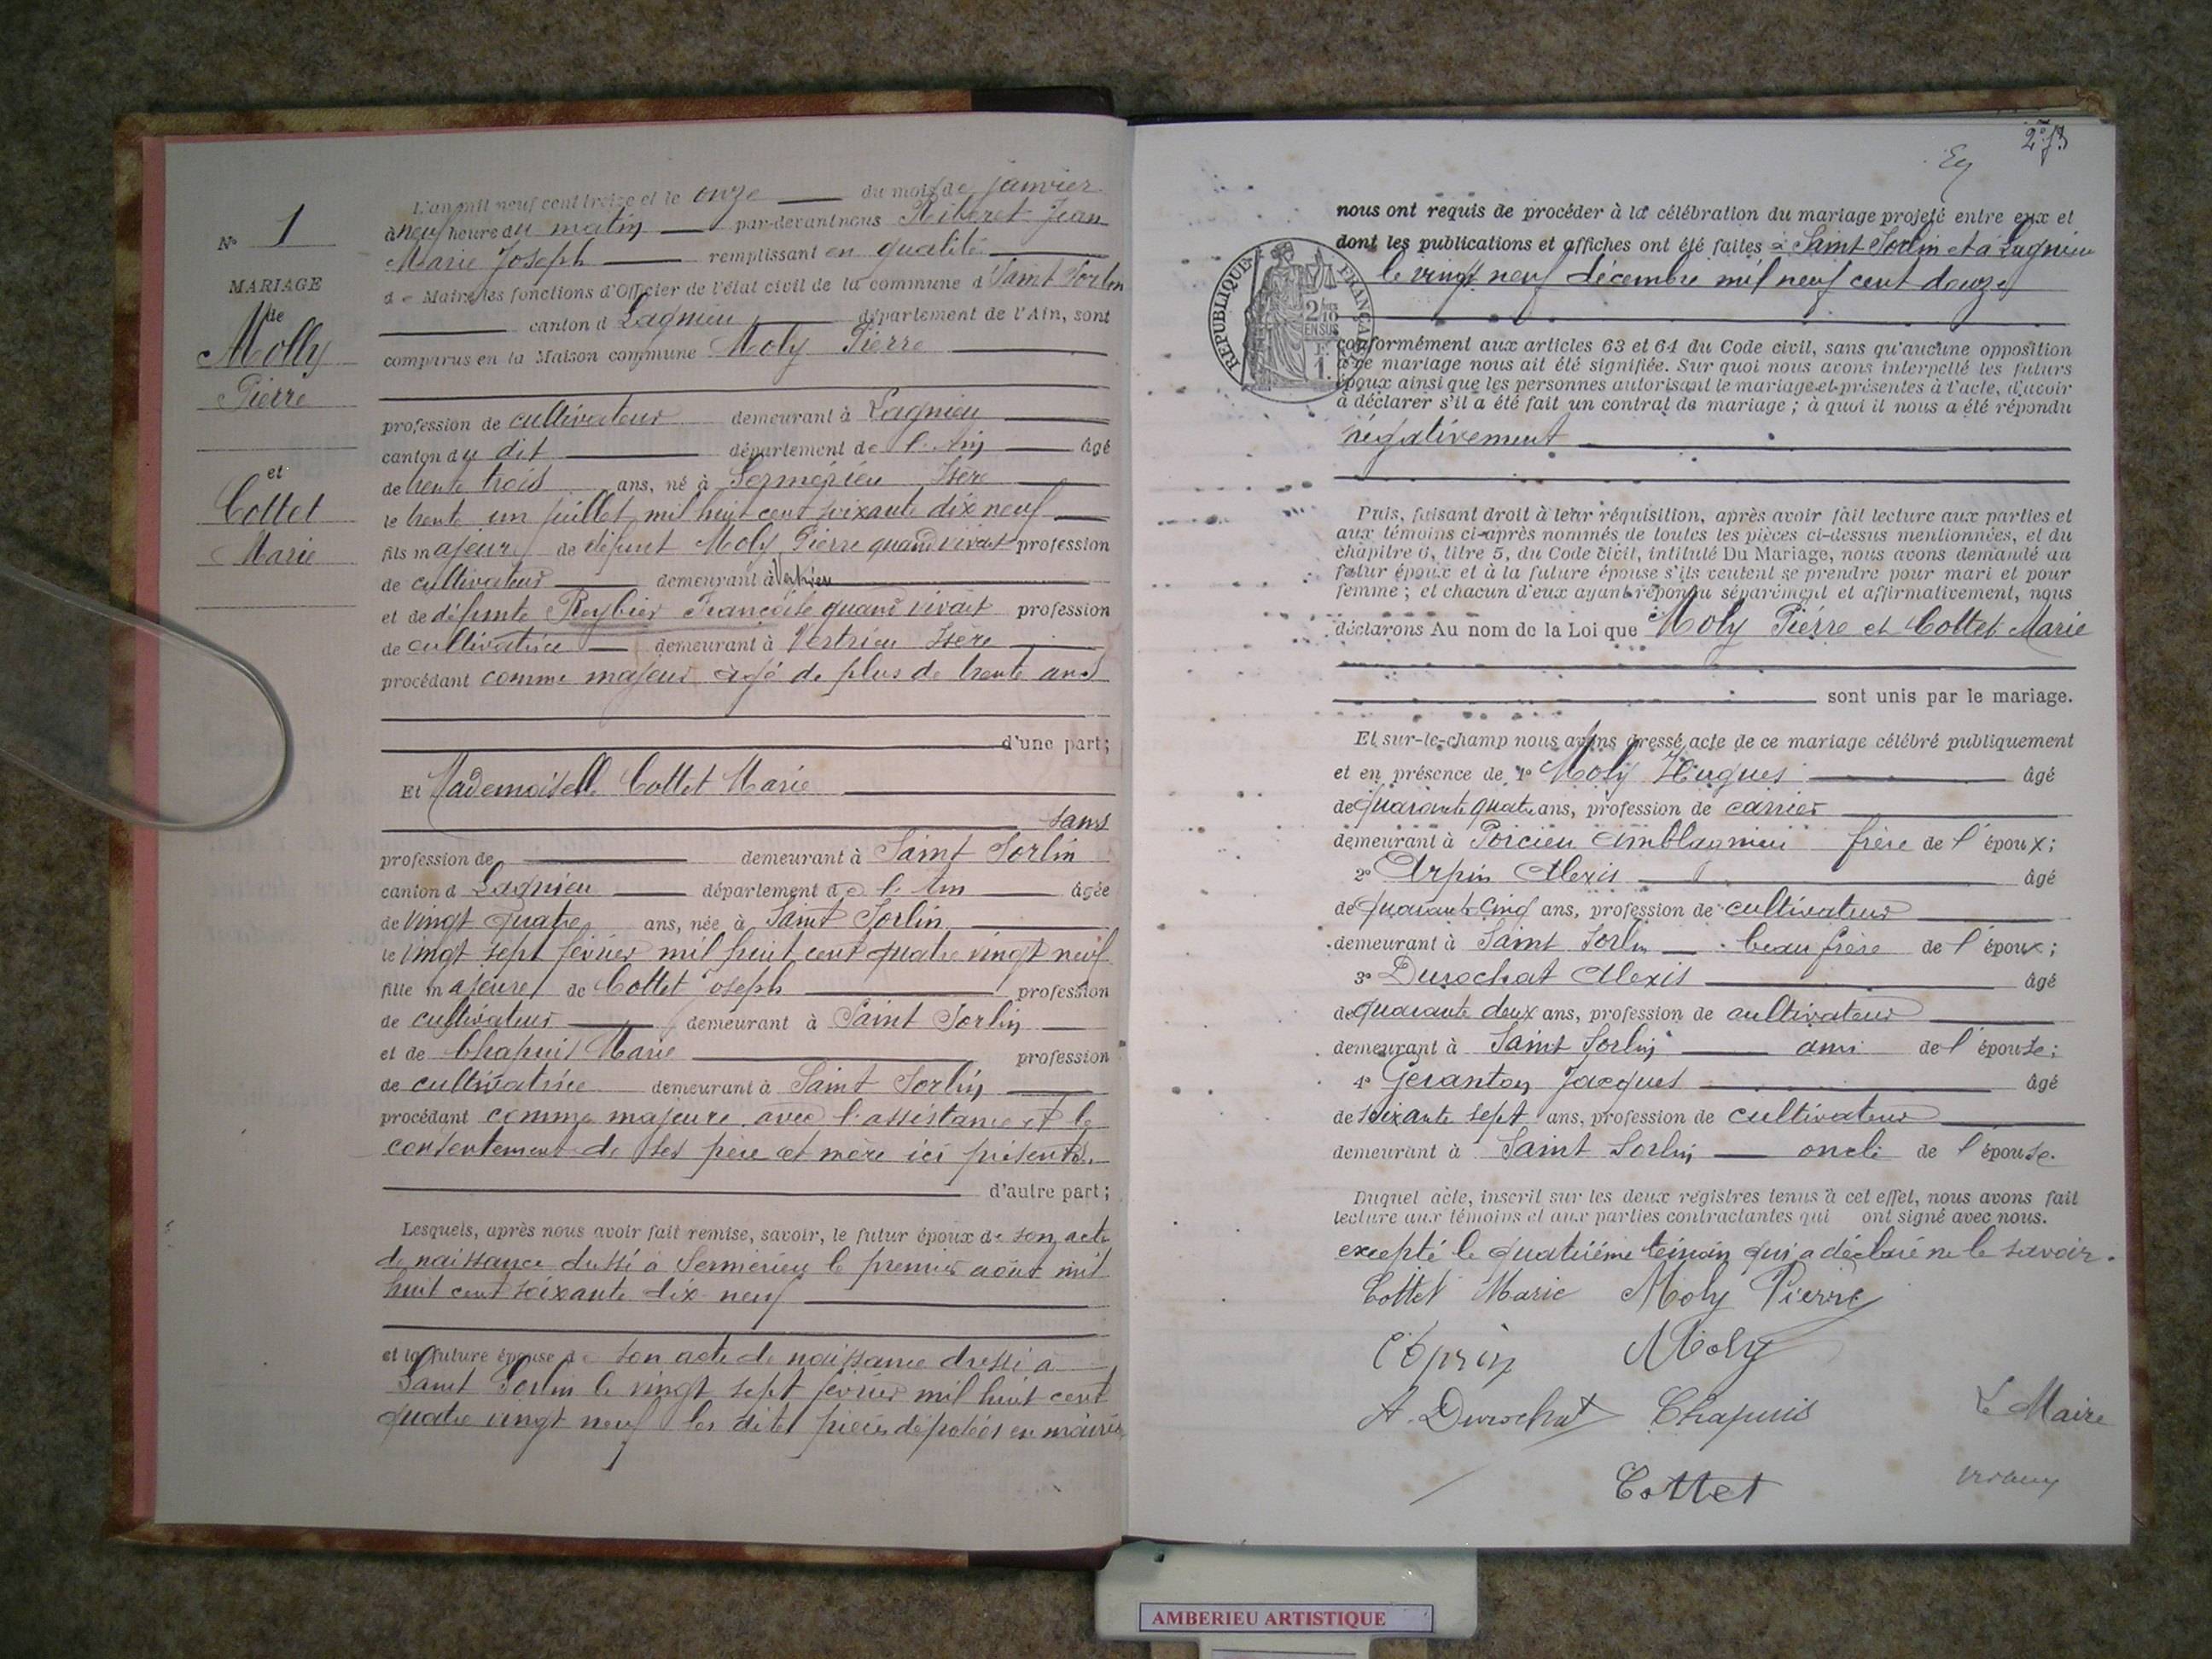 N° 1
MARIAGE
de
Molly
Pierre
et
Cottet
Marie
L'an mil neuf cent treize et le onze du mois de janvier
à neuf heure du matin par-devant nous Riberet Jean
Marie Joseph remplissant en qualité
de Maire les fonctions d'Officier de l'état civil de la commune d Saint Sorlin
canton d Lagnieu département de l'Ain, sont
comparus en la Maison commune Moly Pierre
profession de cultivateur demeurant à Lagnieu
canton du dit département de l'Ain âgé
de trente trois ans, né à Sermérieu Isère
le trente un juillet mil huit cent soixante dix neuf
fils majeur de défunt Moly Pierre quand vivait profession
de cultivateur demeurant à
et de défunte Reybier Françoise quand vivait profession
de cultivatrice demeurant à Vertrieu Isère
procédant comme majeur âgé de plus de trente ans
d'une part;
Et Mademoiselle Cottet Marie
sans
profession de demeurant à Saint Sorlin
canton d Lagnieu département de l'Ain âgée
de vingt quatre ans, née à Saint Sorlin
le vingt sept février mil huit cent quatre vingt neuf
fille majeure de Cottet Joseph profession
de cultivateur demeurant à Saint Sorlin
et de Chapuis Marie profession
de cultivatrice demeurant à Saint Sorlin
procédant comme majeure avec l'assistance et le
consentement de ses père et mère ici présents.
d'autre part;
Lesquels, après nous avoir fait remise, savoir, le futur époux de son acte
de naissance dressé à Sermérieu le premier août mil
huit cent soixante dix neuf
et la future épouse de son acte de naissance dressé à
Saint Sorlin le vingt sept février mil huit cent
quatre vingt neuf les dites pièces déposées en mairie
nous ont requis de procéder à la célébration du mariage projeté entre eux et
dont les publications et affiches ont été faites à Saint Sorlin et à Lagnieu
le vingt neuf décembre mil neuf cent douze
RÉPUBLIQUE FRANÇAISE
2/10
EN SUS
1.
conformément aux articles 63 et 64 du Code civil, sans qu'aucune opposition
à ce mariage nous ait été signifiée. Sur quoi nous avons interpellé les futurs
époux ainsi que les personnes autorisant le mariage et présentes à l'acte, d'avoir
à déclarer s'il a été fait un contrat de mariage; à quoi il nous a été répondu
négativement
Puis, faisant droit à leur réquisition, après avoir fait lecture aux parties et
aux témoins ci-après nommés de toutes les pièces ci-dessus mentionnées, et du
chapitre 6, titre 5, du Code civil, intitulé Du Mariage, nous avons demandé au
futur époux et à la future épouse s'ils veulent se prendre pour mari et pour
femme; et chacun d'eux ayant répondu séparément et affirmativement, nous
déclarons Au nom de la Loi que Moly Pierre et Cottet Marie
sont unis par le mariage.
Et sur-le-champ nous avons dressé acte de ce mariage célébré publiquement
et en présence de 1° Moly Hugues âgé
de quarante quatre ans, profession de carrier
demeurant à Porcieu Amblagnieu frère de l'époux;
2° Arpin Alexis âgé
de quarante cinq ans, profession de cultivateur
demeurant à Saint Sorlin beau frère de l'époux;
3° Durochat Alexis âgé
de quarante deux ans, profession de cultivateur
demeurant à Saint Sorlin ami de l'épouse;
4° Geranton Jacques âgé
de soixante sept ans, profession de cultivateur
demeurant à Saint Sorlin oncle de l'épouse.
Duquel acte, inscrit sur les deux registres tenus à cet effet, nous avons fait
lecture aux témoins et aux parties contractantes qui ont signé avec nous.
excepté le quatrième témoin qui a déclaré ne le savoir.
Cottet Marie Moly Pierre
Moly
A. Durochat Chapuis Le Maire
Cottet
AMBERIEU ARTISTIQUE